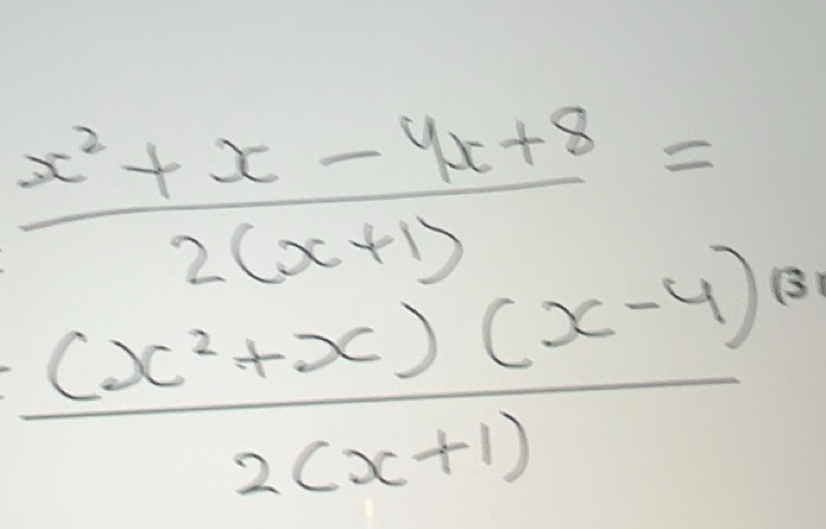 x² + x - 4x + 8 =
2(x+1)
(x²+x) (x-4)
2(x+1)